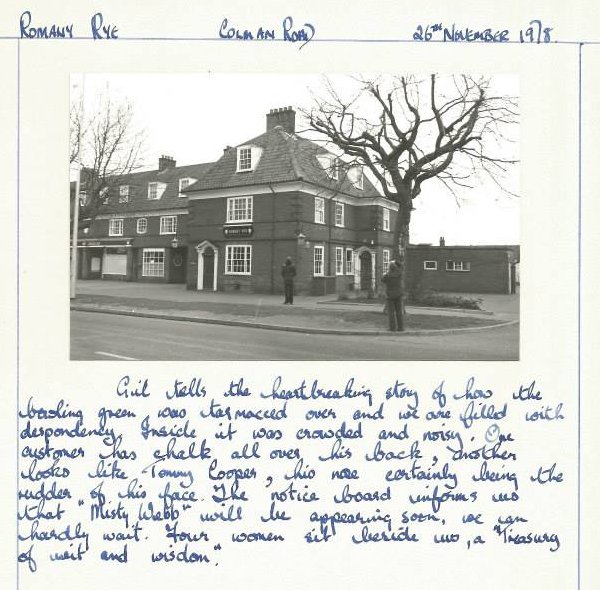 ROMANY RYE COLMAN ROAD 26TH NOVEMBER 1978.
ROMANY RYE
Gil tells the heartbreaking story of how the
bowling green was tarmacced over and we are filled with
despondency. Inside it was crowded and noisy. One
customer has chalk all over his back, another
looks like Tommy Cooper, his nose certainly being the
rudder of his face. The notice board informs us
that "Misty Webb" will be appearing soon, we can
hardly wait. Four women sit beside us, a "Treasury
of wit and wisdom."